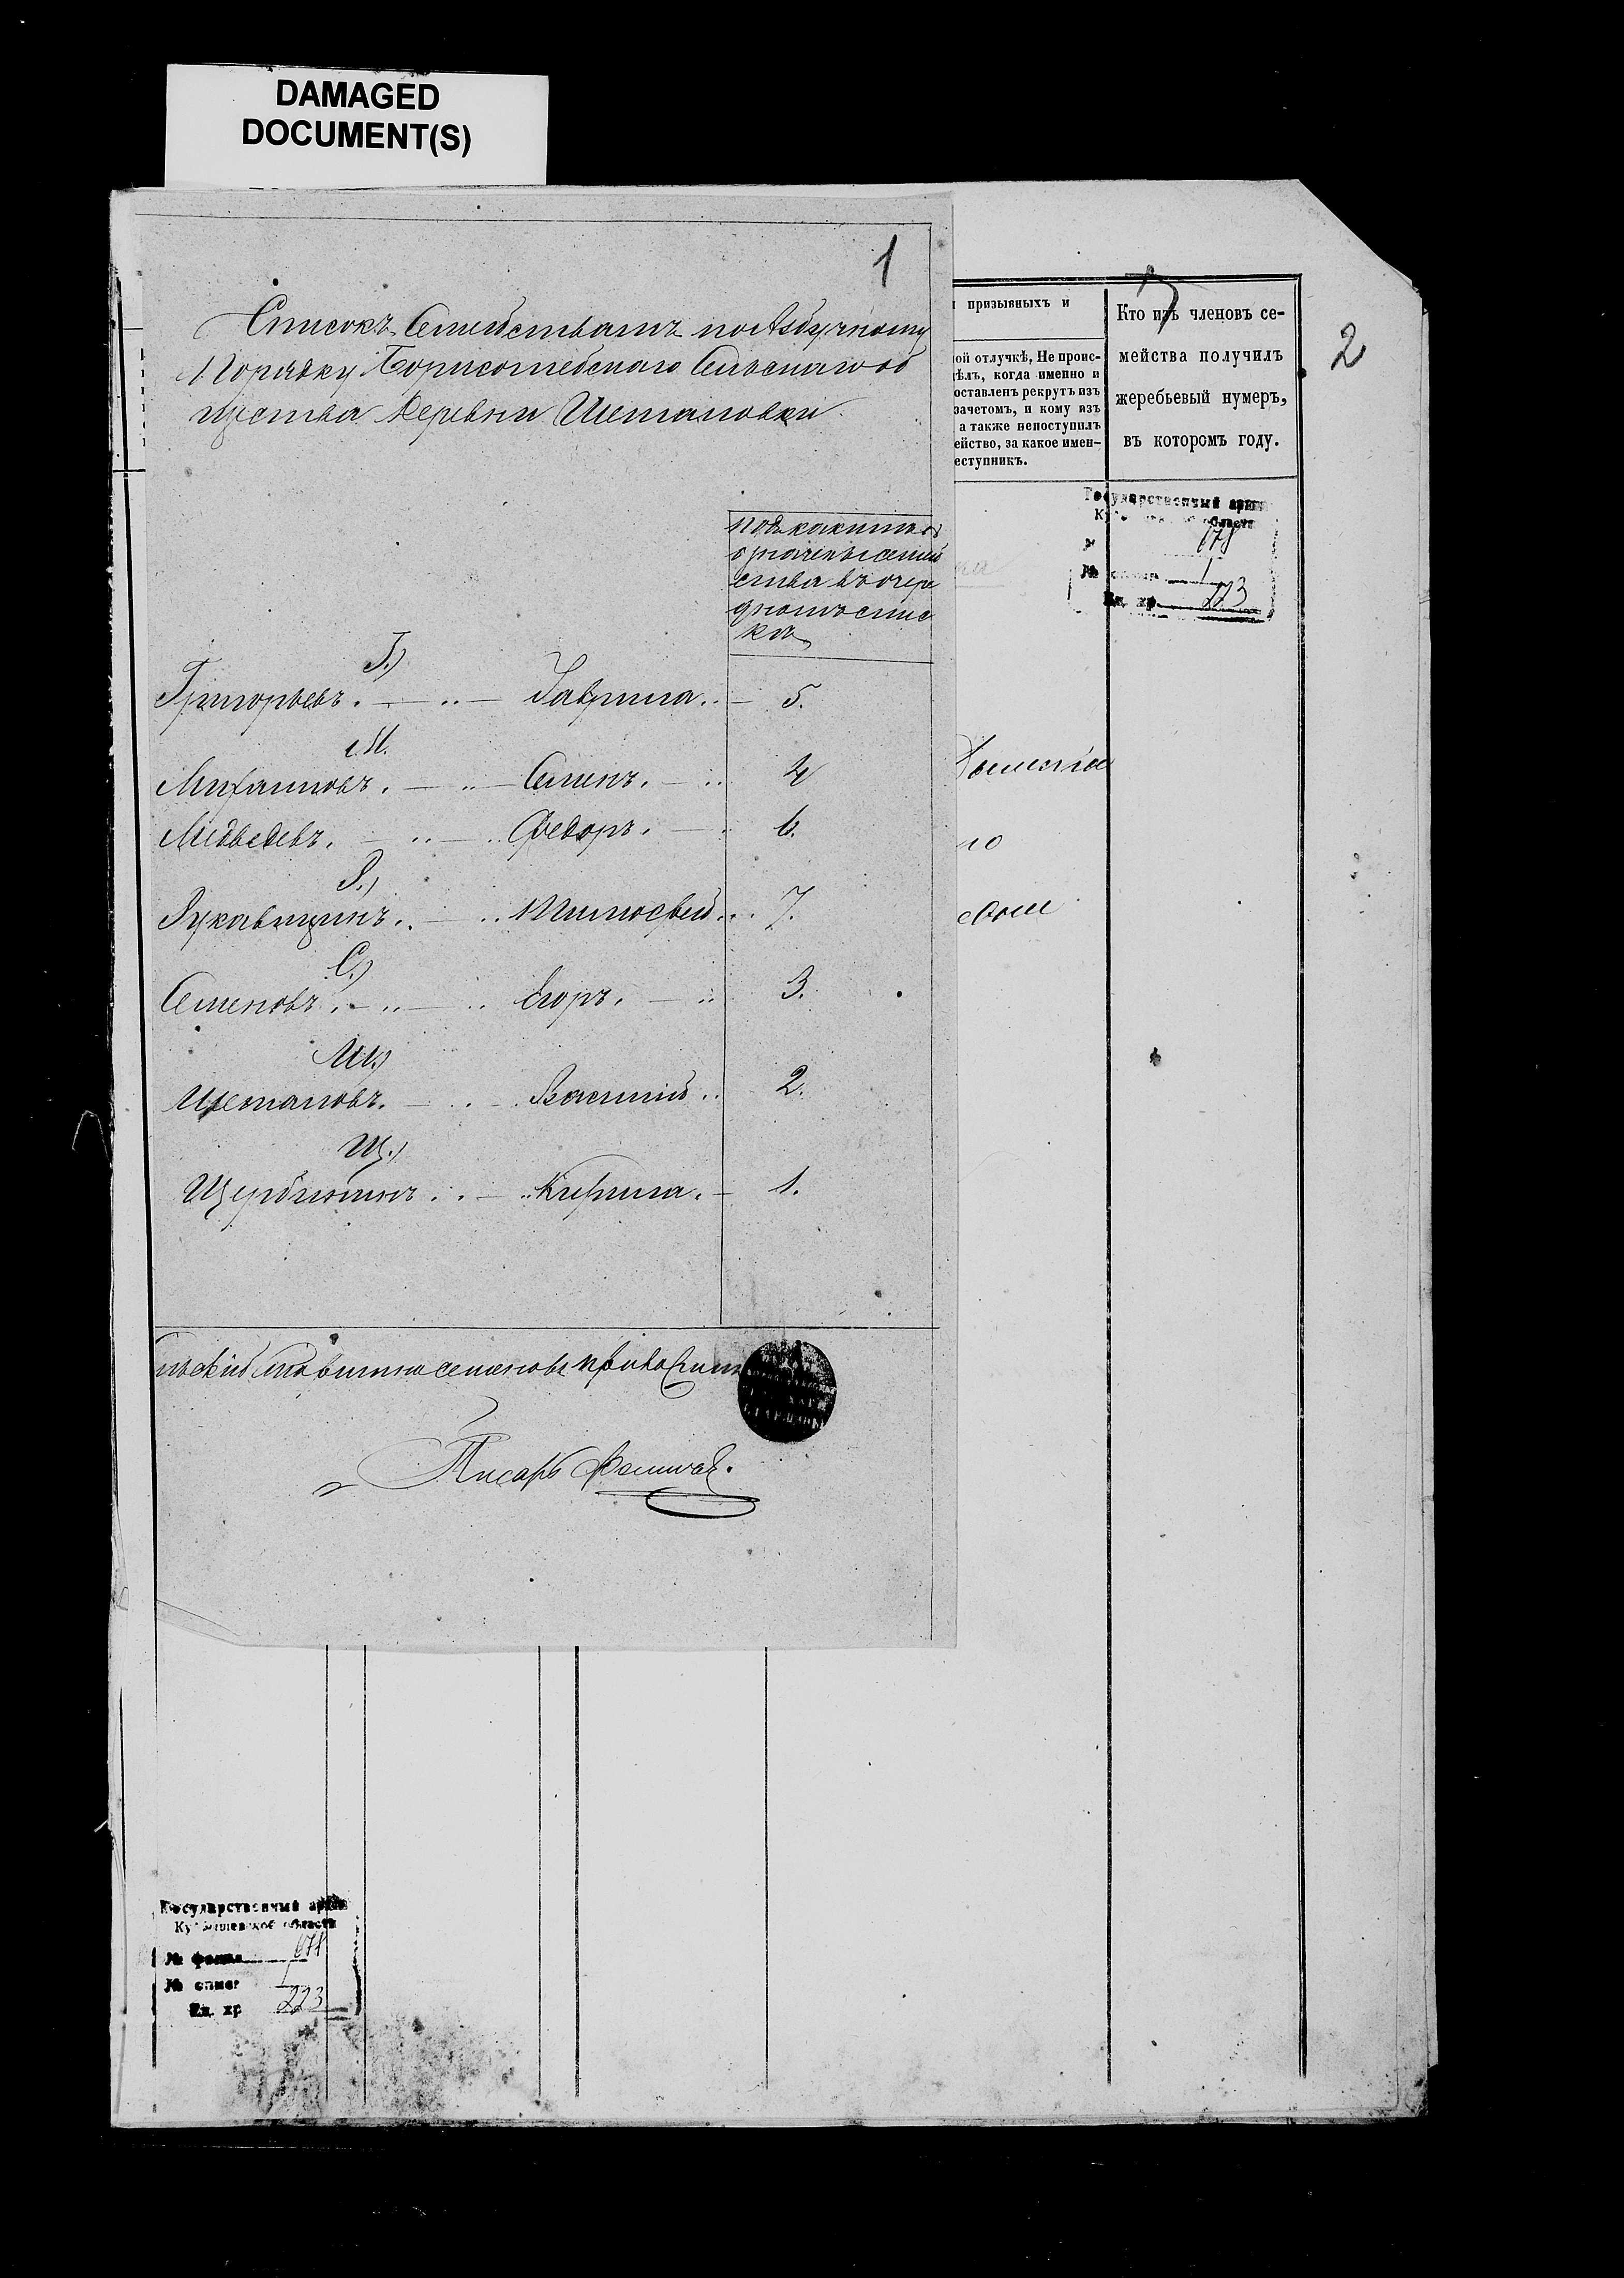 DAMAGED
DOCUMENT(S)
1
Списокъ Семействамъ по Азбучному
Порядку Борисоглебскаго Сельскаго об
щества деревни Шеталовки
подъ какими №
означены семей
ства въ очере
дномъ спис
ка
Г.)
Григорьевъ. Гаврила. 5.
М.
Михаиловъ. Семенъ. 4
Медведевъ. Федоръ. 6.
Р.)
Рукавицинъ. Тимофей. 7.
С.)
Семеновъ. Егоръ. 3.
Ш.)
Шеталовъ. Василий 2.
Щ.)
Щербининъ. Кирила. 1.
семеновъ
Писарь
призывныхъ и
ой отлучкѣ, Не проис-
ѣлъ, когда именно и
оставленъ рекрутъ изъ
зачетомъ, и кому изъ
а также непоступилъ
ейство, за какое имен-
еступникъ.
Кто изъ членовъ се-
мейства получилъ
жеребьевый нумеръ,
въ которомъ году.
2
Государственный архив
области
678
1
Ед. хр. 223
го
Государственный архив
Куйбышевской области
№ фонда 678
№ описи 1
Ед. хр 223